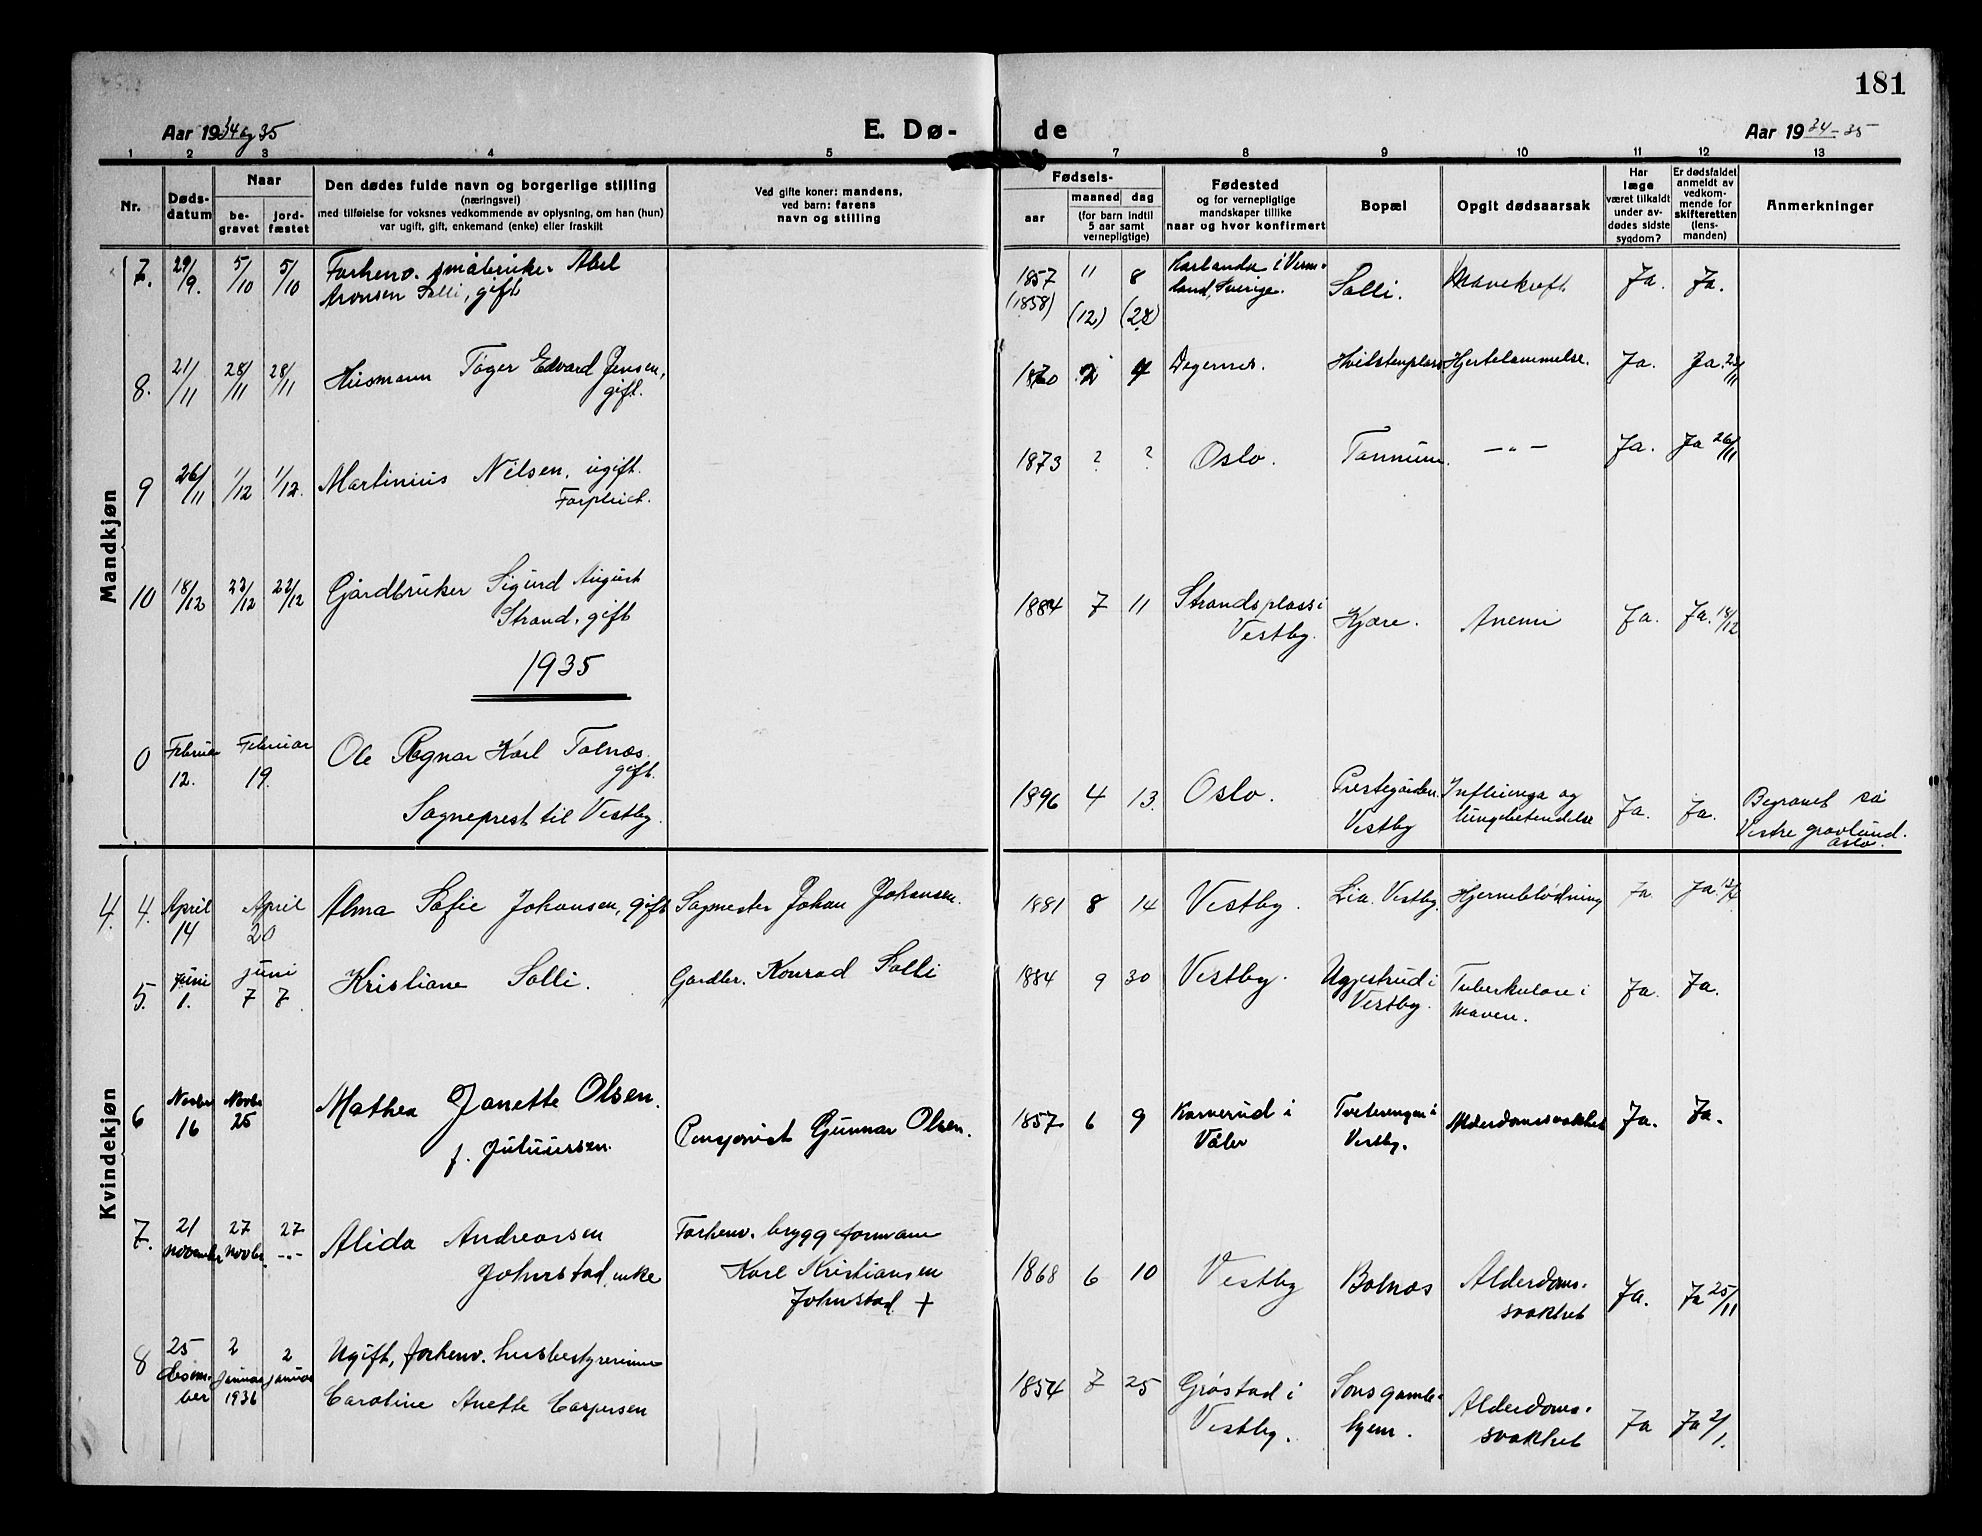 181
Aar 1934 og 35
E. Dø-
de
Aar 1934-35
1 2 3 4 5 6 7 8 9 10 11 12 13
Nr.
Døds-
datum
Naar
be-
gravet
jord-
fæstet
Den dødes fulde navn og borgerlige stilling
(næringsvei)
med tilføielse for voksnes vedkommende av oplysning, om han (hun)
var ugift, gift, enkemand (enke) eller fraskilt
Ved gifte koner: mandens,
ved barn: farens
navn og stilling
Fødsels-
aar
maaned
dag
(for barn indtil
5 aar samt
vernepligtige)
Fødested
og for vernepligtige
mandskaper tillike
naar og hvor konfirmert
Bopæl
Opgit dødsaarsak
Har
læge
været tilkaldt
under av-
dødes sidste
sygdom?
Er dødsfaldet
anmeldt av
vedkom-
mende for
skifteretten
(lens-
manden)
Anmerkninger
Mandkjøn
7. 29/9. 5/10 5/10 Forhenv. småbruker Abel
Aronsen Solli, gift
1857 11 8
(1858) (12) (28)
Karlanda i Verm-
land, Sverige.
Solli.
Mavekreft
Ja. Ja.
8. 21/11 28/11 28/11 Husmann Tøger Edvard Jensen,
gift.
1870 2 4 Degernes. Hvitstenplass Hjertelammelse. Ja. Ja. 23/11
9 26/11 1/12 1/12. Martinius Nilsen, ugift.
Forpleiet.
1873 ? ? Oslo. Tannum. —„— Ja. Ja 26/11
10 18/12 22/12 22/12 Gårdbruker Sigurd August
Strand, gift
1884 7 11 Strandsplass i
Vestby.
Kjære. Anemi Ja. Ja. 18/12
1935
0 Februar
12.
Februar
19.
Ole Ragnar Karl Tolnæs.
gift.
Sogneprest til Vestby.
1896 4 13. Oslo.
Prestegården.
Vestby
Influenza og
lungebetendelse
Ja. Ja.
Begravet på
Vestre gravlund.
Oslo.
Kvindekjøn
4. 4. April
14
April
20
Alma Sofie Johansen, gift Sagmester Johan Johansen.
1881 8 14 Vestby. Lia. Vestby. Hjerneblødning Ja Ja.
5. Juni
1.
Juni
7 7
Kristiane Solli. Gardbr. Konrad Solli
1884 9 30 Vestby. Uggestrud i
Vestby.
Tuberkulose i
maven.
Ja. Ja.
6 Novbr
16
Novbr
25
Mathea Janette Olsen.
f. Juliussen.
Pensjonist Gunnar Olsen.
1857 6 9 Karnerud i
Våler
Vestby.
Alderdomssvakhet Ja. Ja.
7. 21
november
27
novbr.
27
-„-
Alida Andreassen
Johnstad, enke
Forhenv. bryggeformann
Karl Kristiansen
Johnstad +
1868 6 10 Vestby Bolnæs Alderdoms-
svakhet
Ja. Ja 25/11
8 25
desem-
ber
2
januar
1936
2
januar
Ugift, forhenv. husbestyrerinne
Caroline Anette Caspersen
1854 7 25 Grøstad i
Vestby.
Sons gamle-
hjem.
Alderdoms-
svakhet
Ja Ja 2/1.